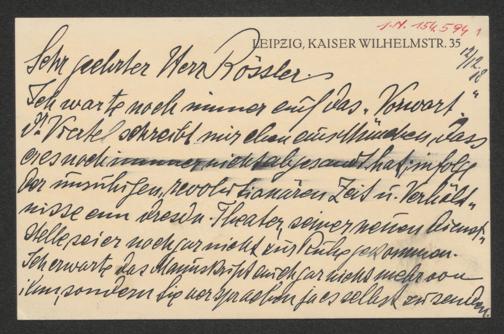 J.N. 154.594
LEIPZIG, KAISER WILHELMSTR. 35
12/12 18
Sehr geehrter Herr Rössler
Ich warte noch immer auf das „Vorwort“
Dr. Viertel schreibt mir eben aus München, dass
er es noch immer nicht abgesandt hat; infolge
der unruhigen, revolutionären Zeit u. Verhält-
nisse am Dresdn. Theater, seiner neuen Dienst-
stelle, sei er noch gar nicht zur Ruhe gekommen.
Ich erwarte das Manuskript auch gar nicht mehr von
ihm, sondern Sie versprachen ja es selbst zu senden.